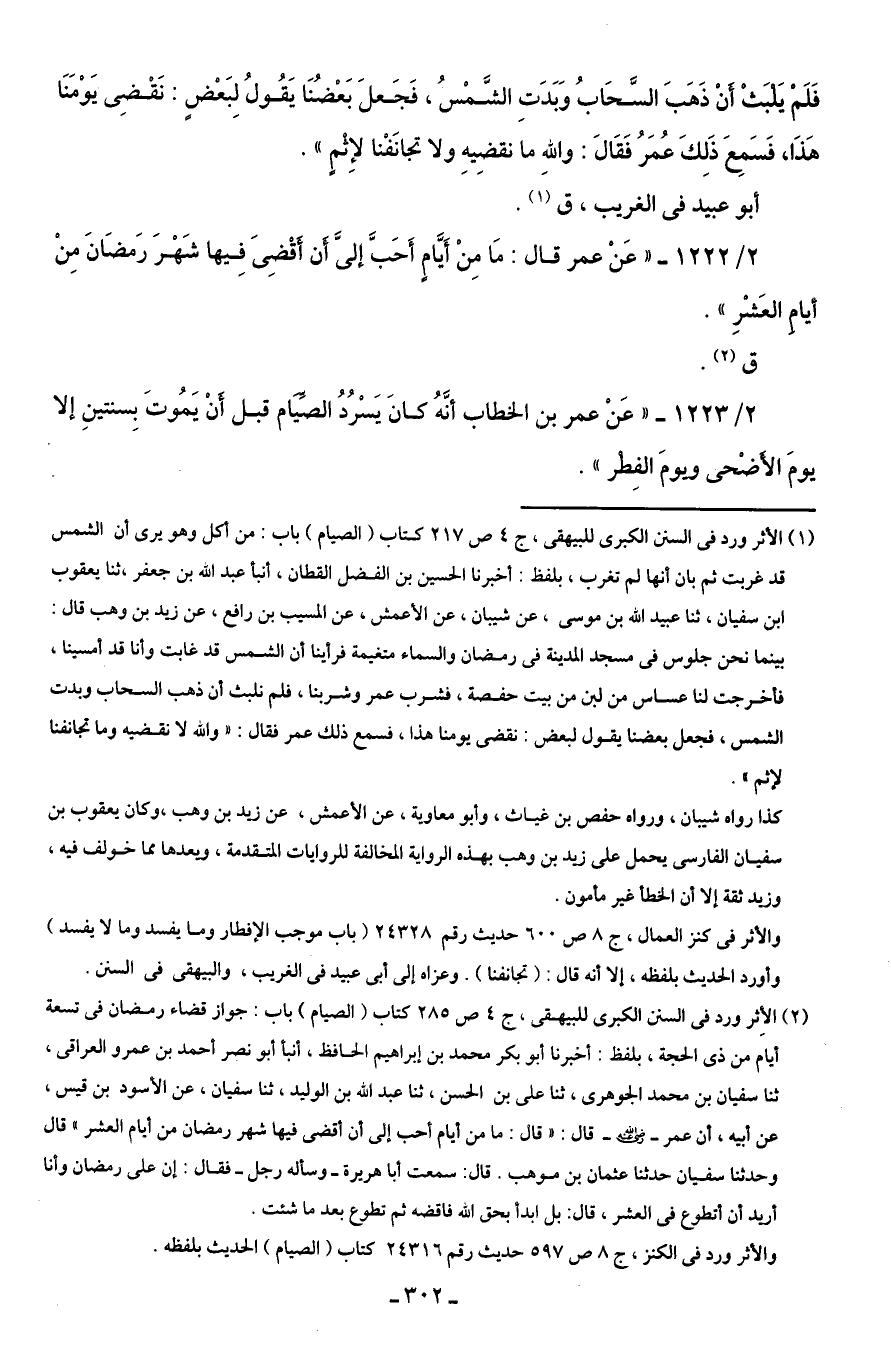 فَلَمْ يَلْبَثْ أَنْ ذَهَبَ السَّحَابُ وَبَدَتِ الشَّمْسُ ، فَجَعلَ بَعْضُنَا يَقُولُ لِبَعْضٍ : نَقْضِى يَوْمَنَا
هَذَا، فَسَمِعَ ذَلِكَ عُمَرُ فَقَالَ : واللهِ ما نقضِيِه ولا تجانَفْنا لإِثْمٍ » .
أبو عبيد فى الغريب ، ق (١) .
٢/ ١٢٢٢ ـ « عَنْ عمر قال : مَا مِنْ أيَّامٍ أحَبَّ إلىَّ أن أَقْضِىَ فِيها شَهْرَ رَمضَانَ مِنْ
أيامِ العَشْرِ » .
ق (٢) .
٢/ ١٢٢٣ ـ « عَنْ عمر بن الخطاب أنَّهُ كانَ يَسْرُدُ الصِّيَام قبل أَنْ يَمُوتَ بِسنتينِ إلا
يومَ الأَضْحى ويومَ الفِطْرِ » .
(١) الأثر ورد فى السنن الكبرى للبيهقى ، ج ٤ ص ٢١٧ كتاب ( الصيام ) باب : من أكل وهو يرى أن الشمس
قد غربت ثم بان أنها لم تغرب ، بلفظ : أخبرنا الحسين بن الفضل القطان ، أنبأ عبد الله بن جعفر ،ثنا يعقوب
ابن سفيان ، ثنا عبيد الله بن موسى ، عن شيبان ، عن الأعمش ، عن المسيب بن رافع ، عن زيد بن وهب قال :
بينما نحن جلوس فى مسجد المدينة فى رمضان والسماء متغيمة فرأينا أن الشمس قد غابت وأنا قد أمسينا ،
فأخرجت لنا عساس من لبن من بيت حفصة ، فشرب عمر وشربنا ، فلم نلبث أن ذهب السحاب وبدت
الشمس ، فجعل بعضنا يقول لبعض : نقضى يومنا هذا ، فسمع ذلك عمر فقال : « والله لا نقضيه وما تجانفنا
لإثم » .
كذا رواه شيبان ، ورواه حفص بن غياث ، وأبو معاوية ، عن الأعمش ، عن زيد بن وهب ،وكان يعقوب بن
سفيان الفارسى يحمل على زيد بن وهب بهذه الرواية المخالفة للروايات المتقدمة ، ويعدها مما خولف فيه ،
وزيد ثقة إلا أن الخطأ غير مأمون .
والأثر فى كنز العمال ، ج ٨ ص ٦٠٠ حديث رقم ٢٤٣٢٨ ( باب موجب الإفطار وما يفسد وما لا يفسد )
وأورد الحديث بلفظه ، إلا أنه قال : ( تجانفنا ) . وعزاه إلى أبى عبيد فى الغريب ، والبيهقى فى السنن .
(٢) الأثر ورد فى السنن الكبرى للبيهقى ، ج ٤ ص ٢٨٥ كتاب ( الصيام ) باب : جواز قضاء رمضان فى تسعة
أيام من ذى الحجة ، بلفظ : أخبرنا أبو بكر محمد بن إبراهيم الحافظ ، أنبأ أبو نصر أحمد بن عمرو العراقى ،
ثنا سفيان بن محمد الجوهرى ، ثنا على بن الحسن ، ثنا عبد الله بن الوليد ، ثنا سفيان ، عن الأسود بن قيس ،
عن أبيه ، أن عمر ـ رضي الله عنه ـ قال : « قال : ما من أيام أحب إلى أن أقضى فيها شهر رمضان من أيام العشر » قال
وحدثنا سفيان حدثنا عثمان بن موهب . قال: سمعت أبا هريرة ـ وسأله رجل ـ فقال : إن على رمضان وأنا
أريد أن أتطوع فى العشر ، قال: بل ابدأ بحق الله فاقضه ثم تطوع بعد ما شئت .
والأثر ورد فى الكنز ، ج ٨ ص ٥٩٧ حديث رقم ٢٤٣١٦ كتاب ( الصيام ) الحديث بلفظه .
ـ ٣٠٢ ـ